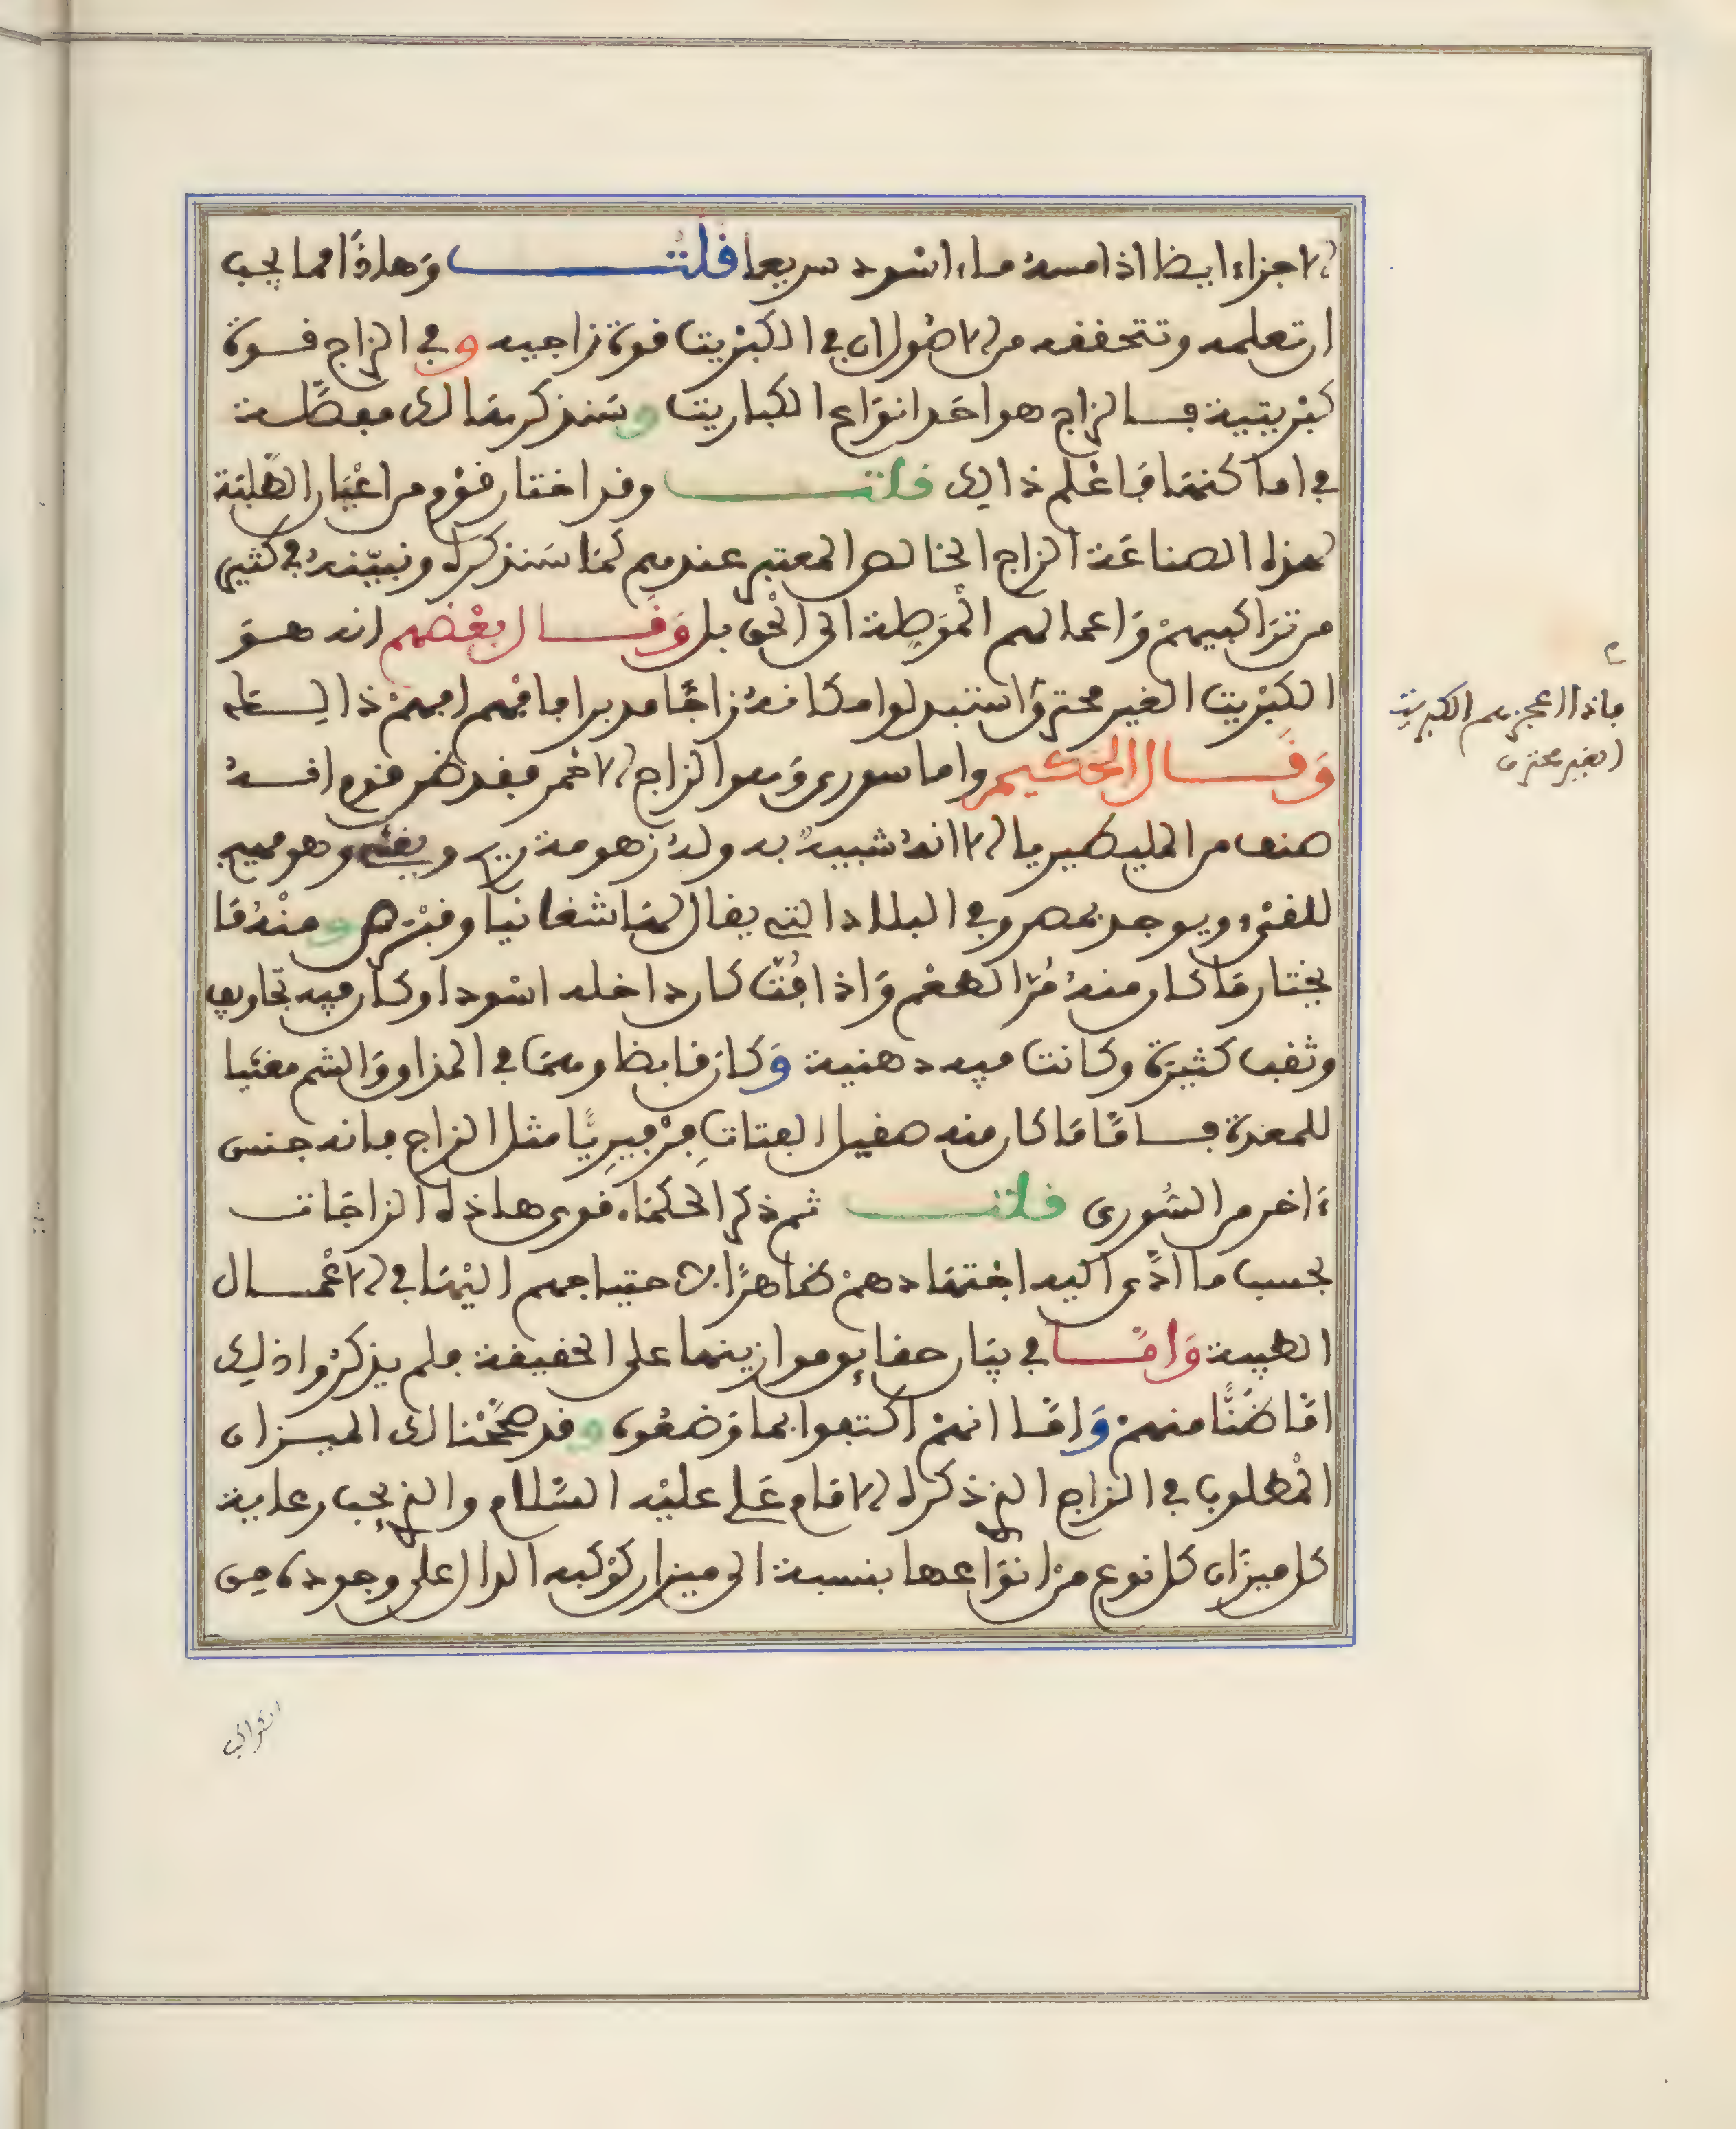 الاجزاء ايضا اذا مسه ماء اسود سريعا قلت وهاذا مما يجب
ان تعلمه وتتحققه من الاصول ان في الكبريت قوة زاجية و في الزاج قوة
كبريتية فالزاج هو احد انواع الكباريت و سنذكر مقالك مفصلة
في اماكنها فاعلم ذالك قلت وقد اختار قوم من اعيان الطلبة
لهذه الصناعة الزاج الخالص المعتبر عندهم كما سنذكره ونبينه في كثير
من تراكيبهم واعمالهم الموصلة الى الحق بل وقال بعضهم انه هو
الكبريت الغير محترق واستبدلوا مكانه زاجا مدبرا فافهم افهم ذالك
وقال الحكيم واما سوري وهو الزاج الاحمر فقد ظن قوم انه
صنف من المليطيريا الا انه شبيه به وله زهومة ريح ويغثي وهو مهيج
للقيء ويوجد بمصر وفي البلاد التي يقال لها شغانيا وقبرص و منه ما
يختار ما كان منه مر الطعم واذا فت كان داخله اسود او كان فيه تجاويف
وثقب كثيرة وكانت فيه دهنية وكان قابضا وهما في المذاق والشم مغثيا
للمعدة فاما ما كان منه صقيل الفتات فرفيريا مثل الزاج فانه جنس
ءاخر من السوري قلت ثم ذكر الحكماء قوى هاذه الزاجات
بحسب ما ادى اليه اجتهادهم ظاهرا لاحتياجهم اليها في الاعمال
الطبية واما في بيان حقايق موازينها على الحقيقة فلم يذكروا ذلك
اما ضنا منهم واما انهم اكتفوا بما وضعوه و قد صححنا لك الميزان
المطلوب في الزاج الذي ذكره الامام علي عليه السلام والذي يجب رعاية
كل ميزان كل نوع من انواعها بنسبة الى ميزان كوكبه الدال على وجوده من
فاذا العجزهم الكبريت
الغير محترق